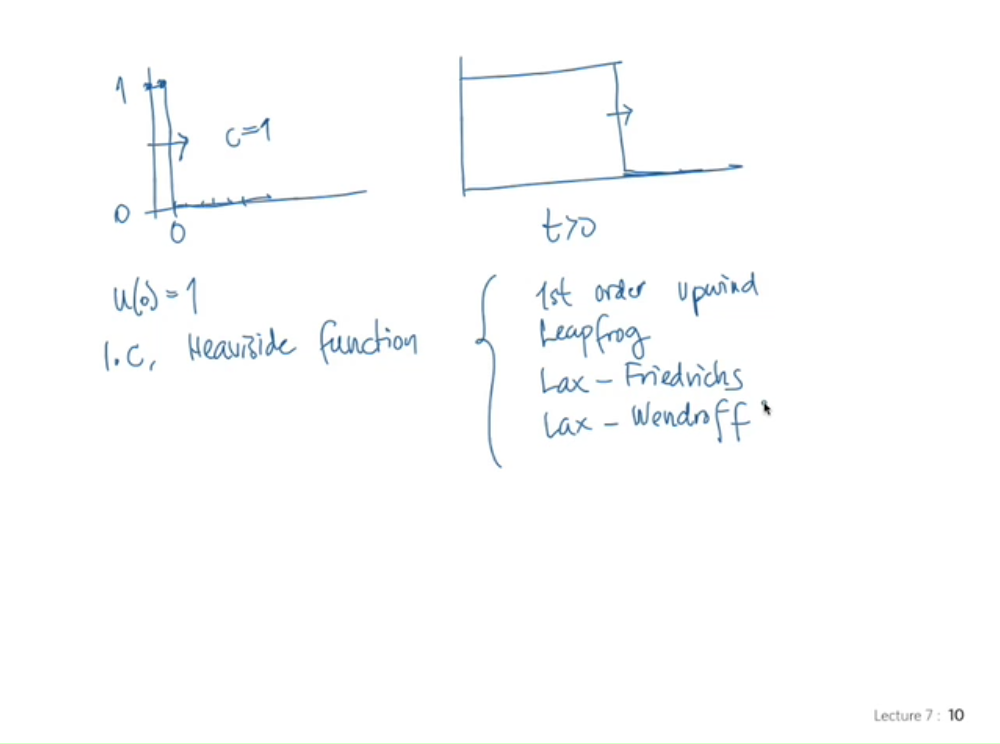 1
c=1
0
0
t>0
u(0)=1
I.C. Heaviside function
1st order upwind
Leapfrog
Lax - Friedrichs
Lax - Wendroff
Lecture 7 : 10